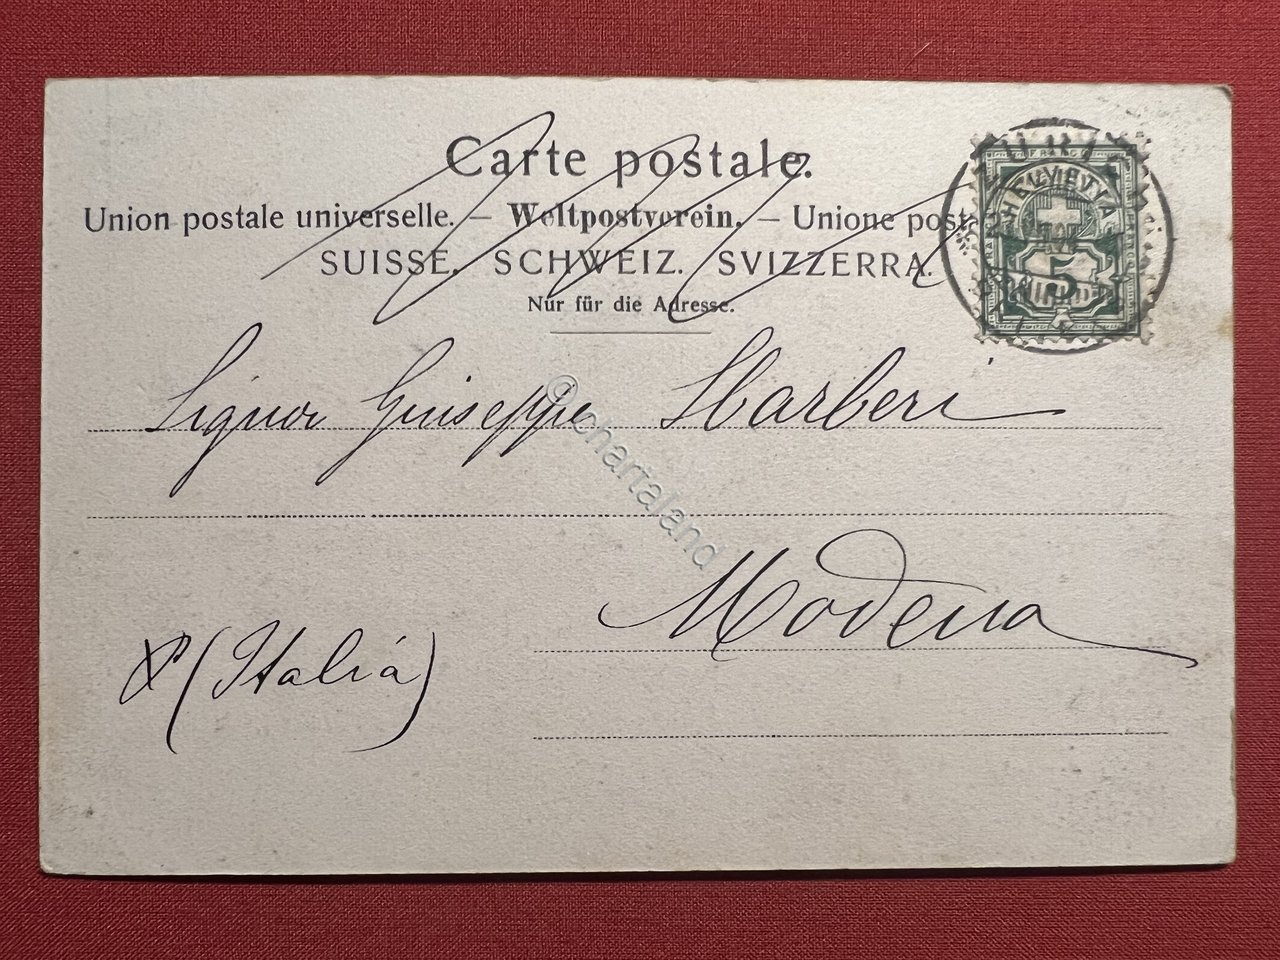 Carte postale.
Union postale universelle. — Weltpostverein. — Unione posta
SUISSE. SCHWEIZ. SVIZZERRA.
Nur für die Adresse.
HELVETIA
5
Signor Giuseppe
© chartaland
Modena
(Italia)